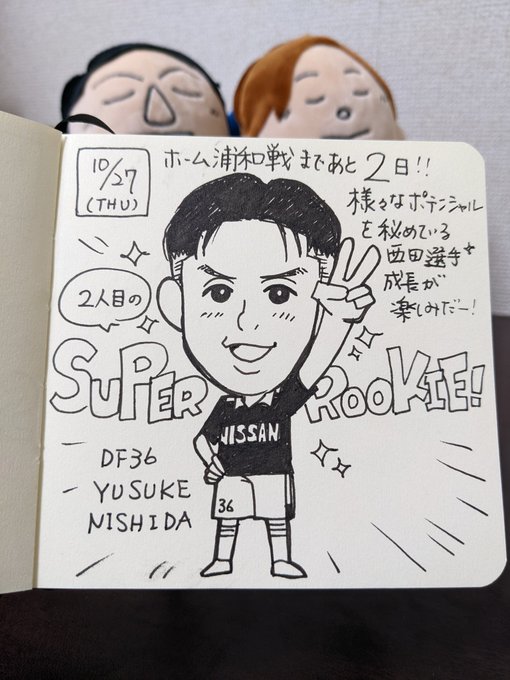 10/27
(THU)
ホーム浦和戦まであと2日!!
様々なポテンシャル
を秘めている
西田選手
成長が
楽しみだー!
2人目の
SUPER ROOKIE!
NISSAN
DF36
YUSUKE
NISHIDA
36